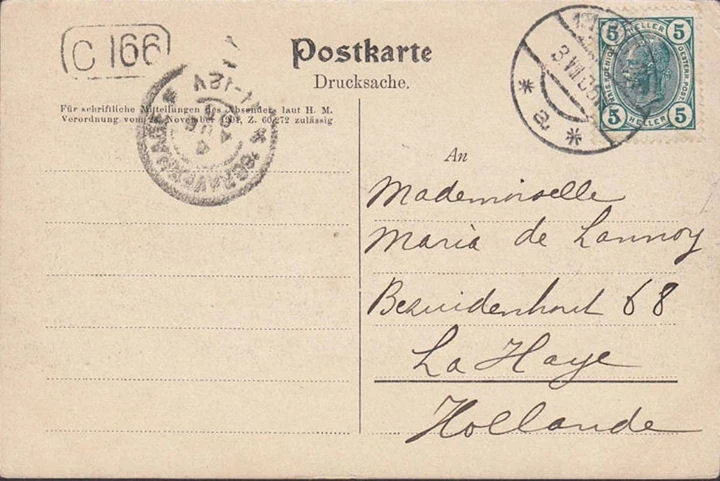 C 166
Postkarte
Drucksache.
Für schriftliche Mitteilungen des Absenders laut H. M.
Verordnung vom November 1904, Z. 60.272 zulässig
'S GRAVENHAGE
5 HELLER 5
5 HELLER 5
An
Mademoiselle
Maria de Lannoy
Bezuidenhout 68
La Haye
Hollande